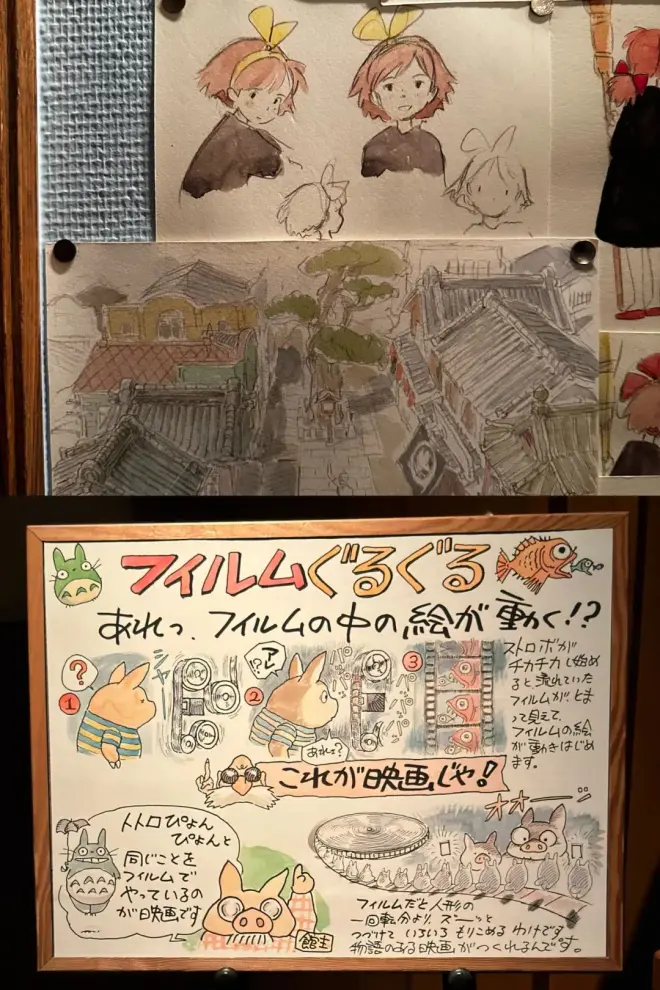 フィルムぐるぐる
あれっ、フィルムの中の絵が動く!?
?
シャー
1
アレ
!?
2
あれっ?
パパパパ
3
ストロボが
チカチカし始め
ると流れていた
フィルムが、とま
って見えて、
フィルムの絵
が動きはじめ
ます。
これが映画じゃ!
オオーージ
トトロぴょん
ぴょんと
同じことを
フィルムで
やっているの
が映画です
館主
フィルムだと人形の
一回転分より、ズーーッと
つづけていろいろもりこめるわけです
物語のある映画がつくれるんです。